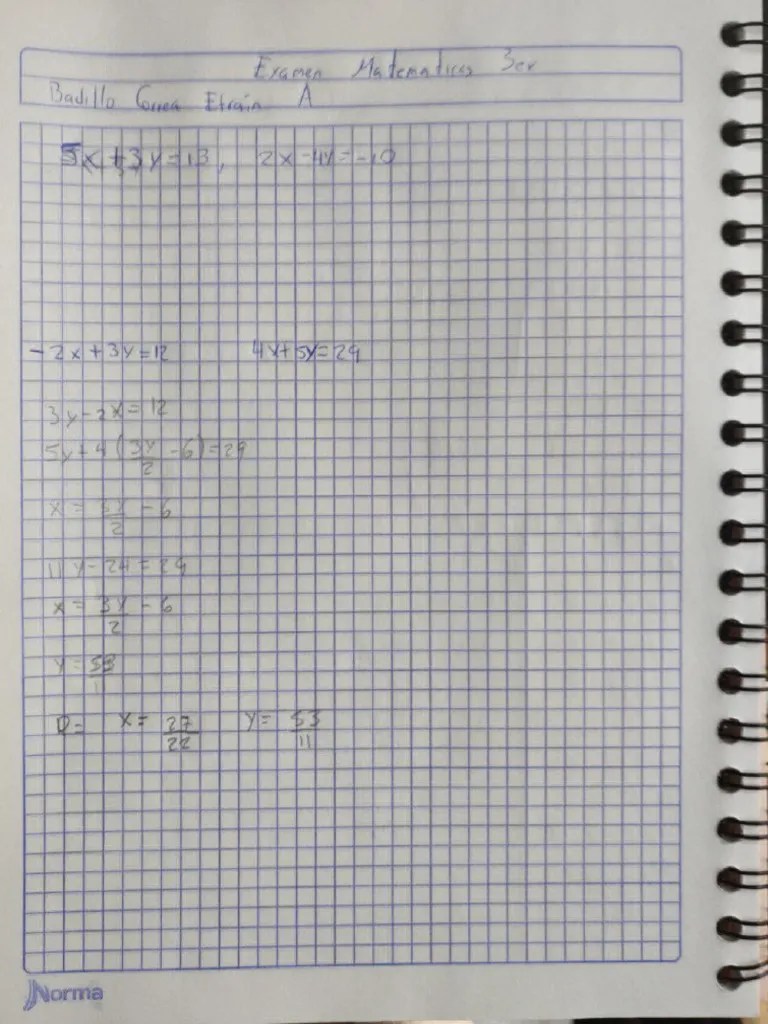 Examen Matematicas 3er
Badillo Correa Efraín A
5x+3y=13, 2x-4y=-10
-2x+3y=12 4x+5y=29
3y-2x=12
5y+4(3y/2-6)=29
x=3y/2-6
11y-24=29
x=3y/2-6
y=53/11
D= x=27/22 y=53/11
Norma